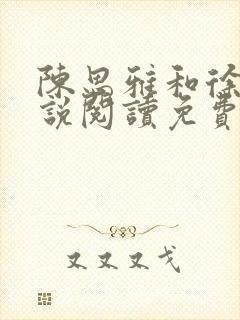 陳思雅和徐
說閱讀免費
又又又戈